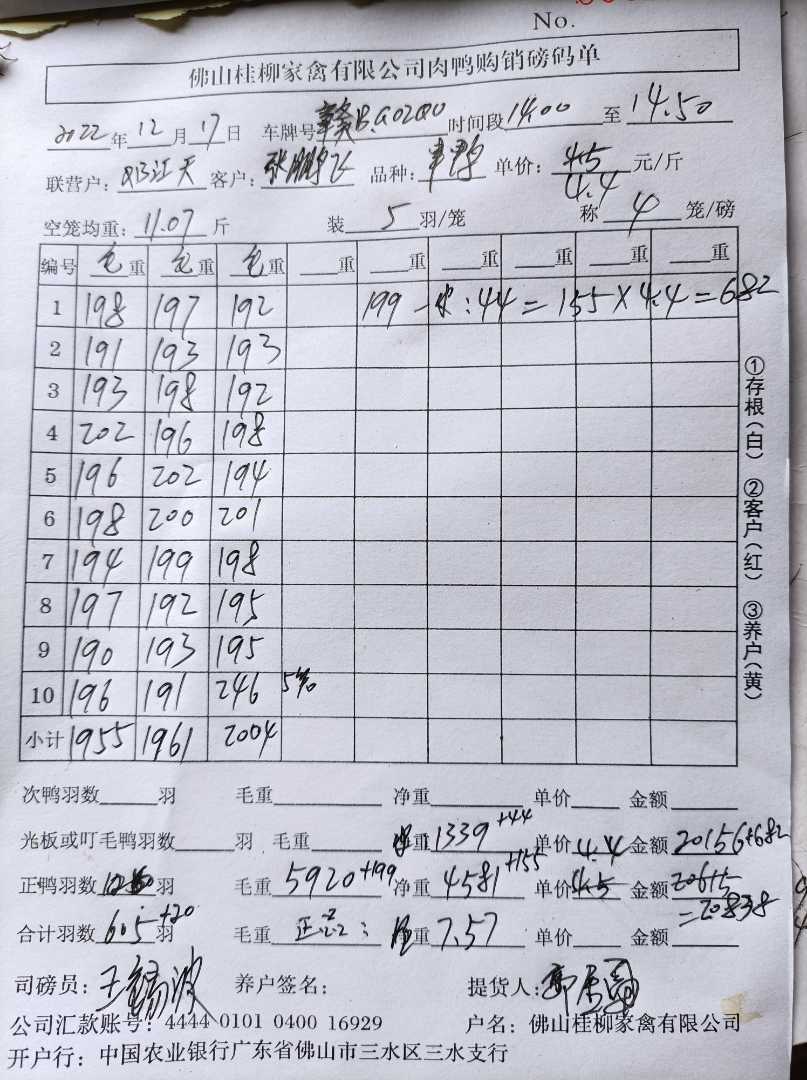 No.
佛山桂柳家禽有限公司肉鸭购销磅码单
2022年12月17日 车牌号赣B.G02QU 时间段14.00至14.50
联营户: 客户:张鹏飞 品种: 单价:4.5元/斤
4.4
空笼均重:11.07斤 装5羽/笼 称4笼/磅
编号 毛重 毛重 毛重 重 重 重 重 重 重
1 198 197 192 199 - 水:44=155×4.4=682
2 191 193 193
3 193 198 192
4 202 196 198
5 196 202 194
6 198 200 201
7 194 199 198
8 197 192 195
9 190 193 195
10 196 191 246 5笼
小计 1955 1961 2004
①存根(白) ②客户(红) ③养户(黄)
次鸭羽数 羽 毛重 净重 单价 金额
光板或叮毛鸭羽数 羽 毛重 重1339+44 单价4.4 金额20156+682
正鸭羽数 羽 毛重5920+199 净重4581+155 单价4.5 金额20615
=20838
合计羽数605+20羽 毛重 重7.57 单价 金额
司磅员:王锡波 养户签名: 提货人:
公司汇款账号:4444 0101 0400 16929 户名:佛山桂柳家禽有限公司
开户行:中国农业银行广东省佛山市三水区三水支行